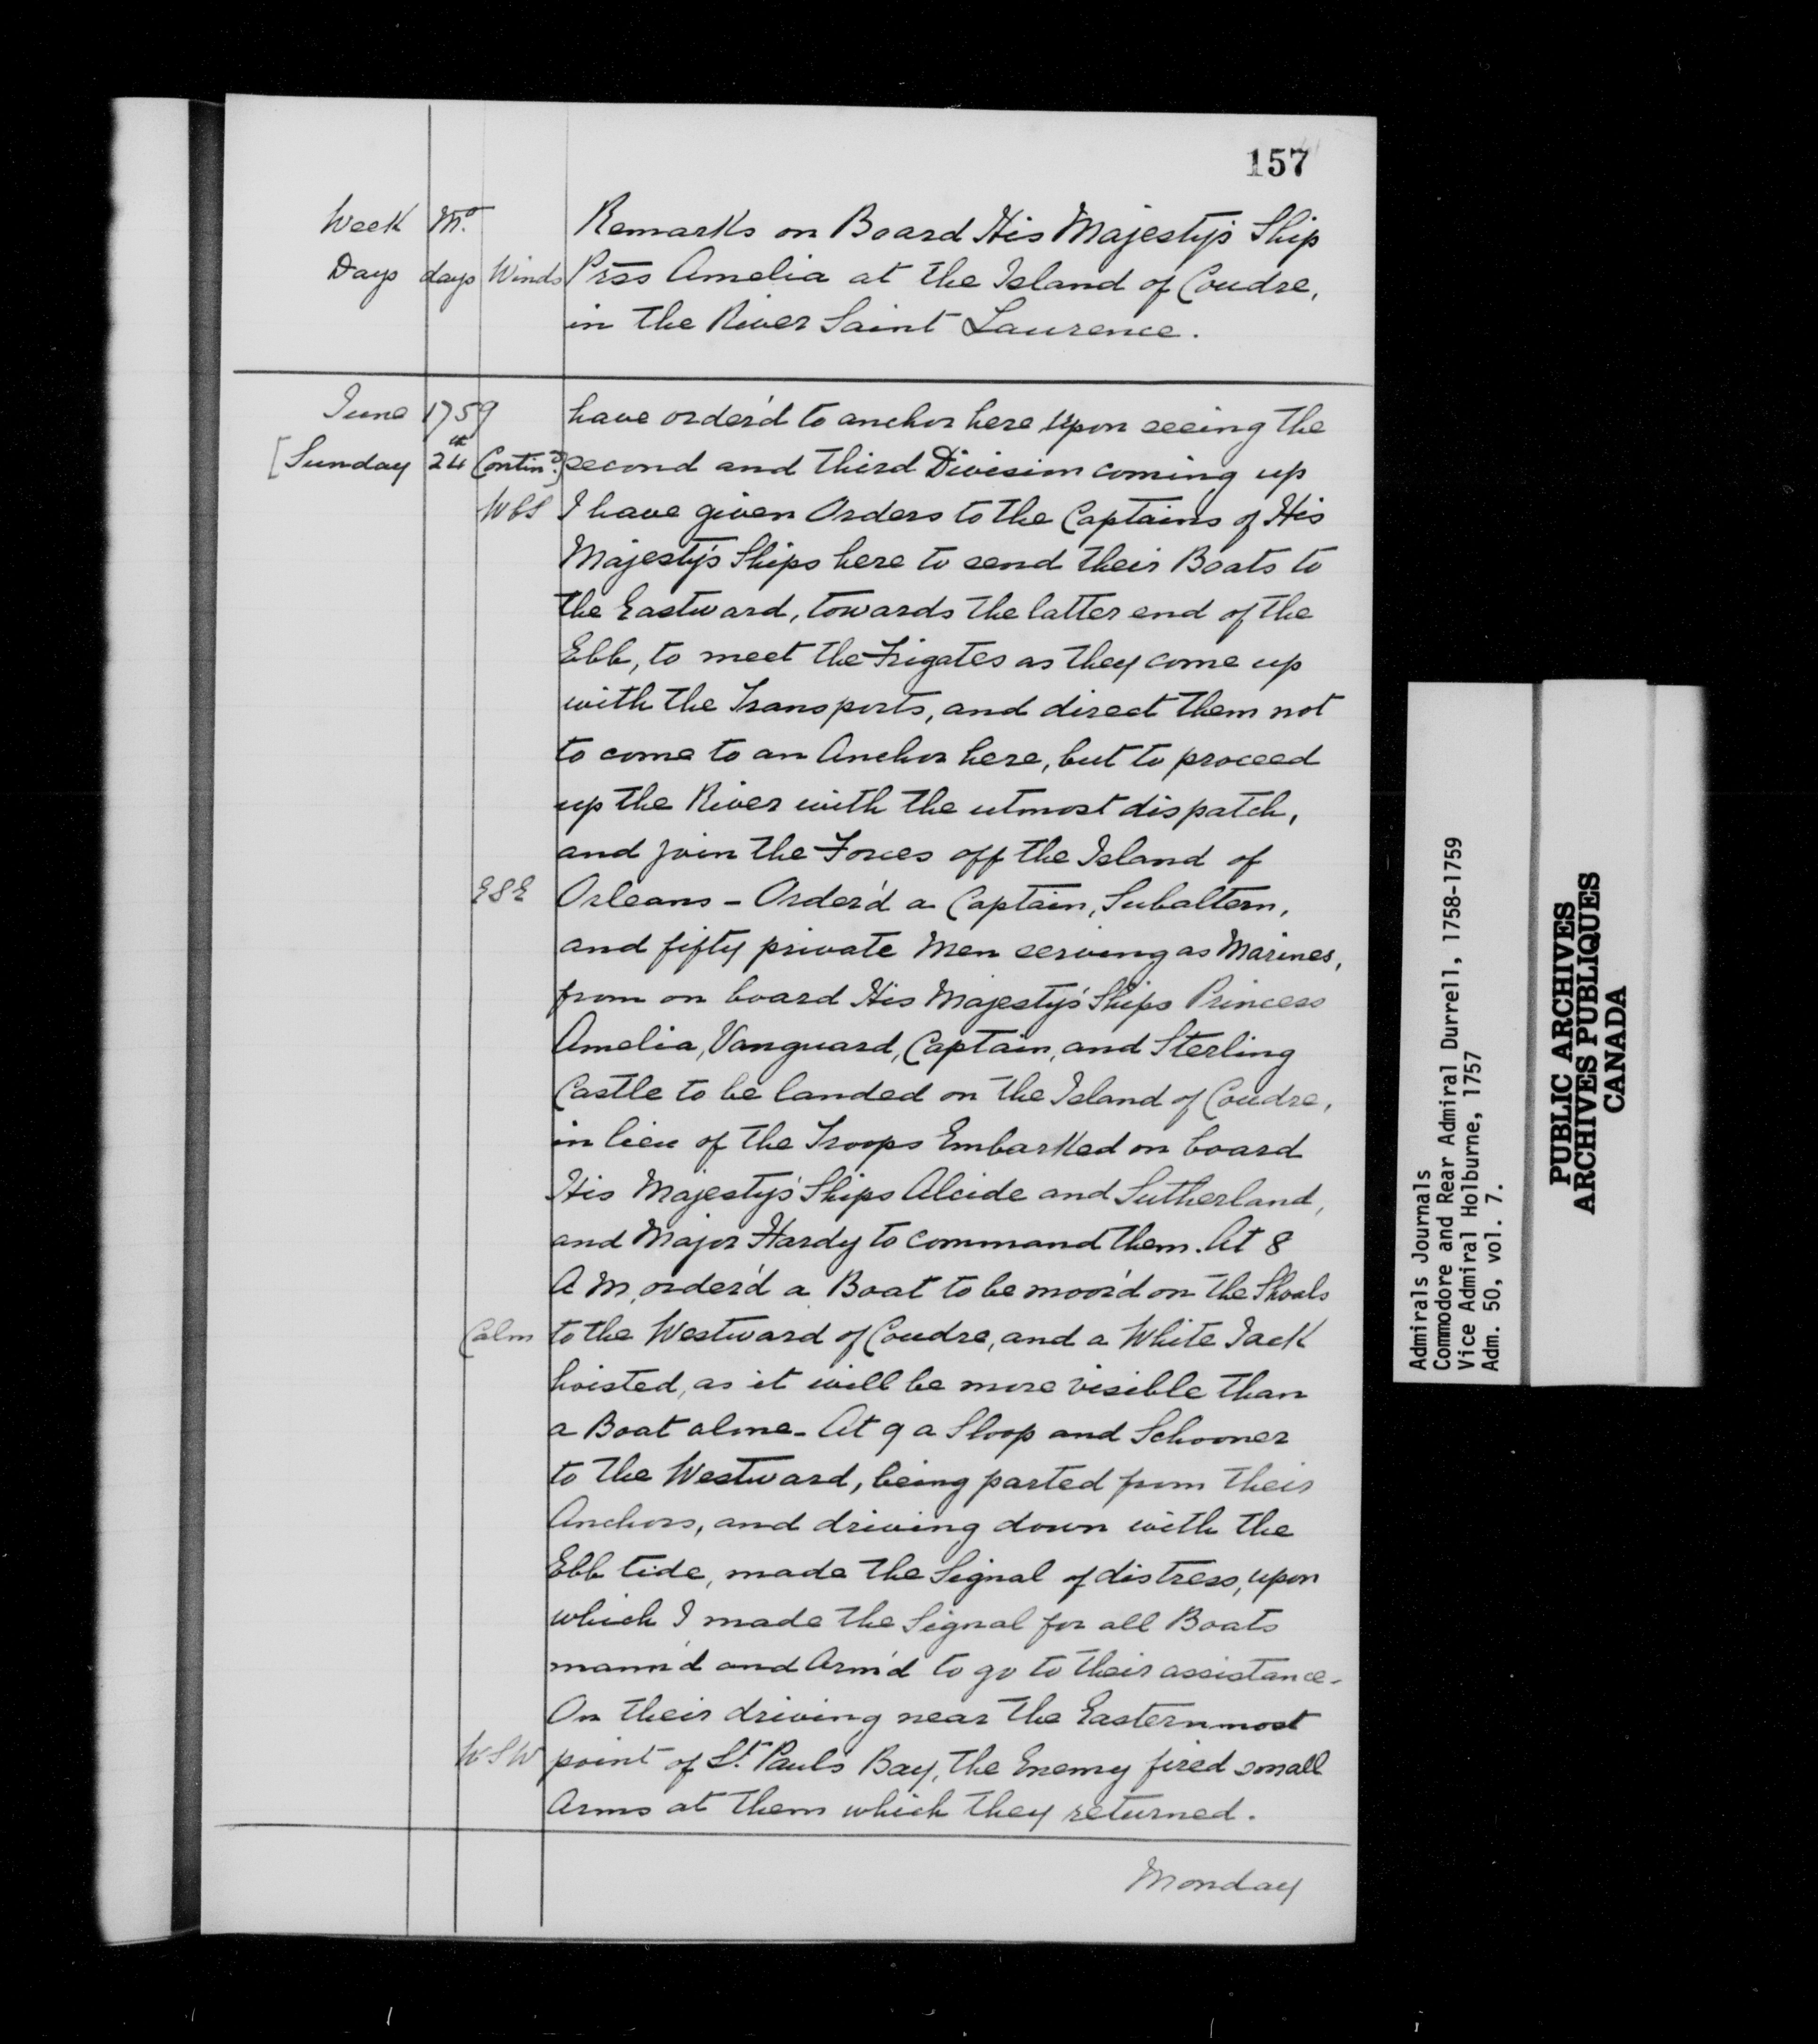 157
Week Mo. Remarks on Board His Majesty's Ship
Days days Winds Prss Amelia at the Island of Coudre,
in the River Saint Laurence.
June 1759 have order'd to anchor here upon seeing the
[Sunday 24th Contin'd] second and third Division coming up
WbS I have given Orders to the Captains of His
Majesty's Ships here to send their Boats to
the Eastward, towards the latter end of the
Ebb, to meet the Frigates as they come up
with the Transports, and direct them not
to come to an Anchor here, but to proceed
up the River with the utmost dispatch,
and join the Forces off the Island of
ESE Orleans - Order'd a Captain, Subaltern,
and fifty private Men serving as Marines,
from on board His Majesty's Ships Princess
Amelia, Vanguard, Captain, and Sterling
Castle to be landed on the Island of Coudre,
in lieu of the Troops Embarked on board
His Majesty's Ships Alcide and Sutherland,
and Major Hardy to command them. At 8
A M, order'd a Boat to be moor'd on the Shoals
Calm to the Westward of Coudre, and a White Jack
hoisted, as it will be more visible than
a Boat alone - At 9 a Sloop and Schooner
to the Westward, being parted from their
Anchors, and driving down with the
Ebb tide, made the Signal of distress, upon
which I made the Signal for all Boats
mann'd and Arm'd to go to their assistance -
On their driving near the Easternmost
WSW point of St. Pauls Bay, the Enemy fired small
Arms at them which they returned.
Monday
Admirals Journals
Commodore and Rear Admiral Durrell, 1758-1759
Vice Admiral Holburne, 1757
Adm. 50, vol. 7.
PUBLIC ARCHIVES
ARCHIVES PUBLIQUES
CANADA